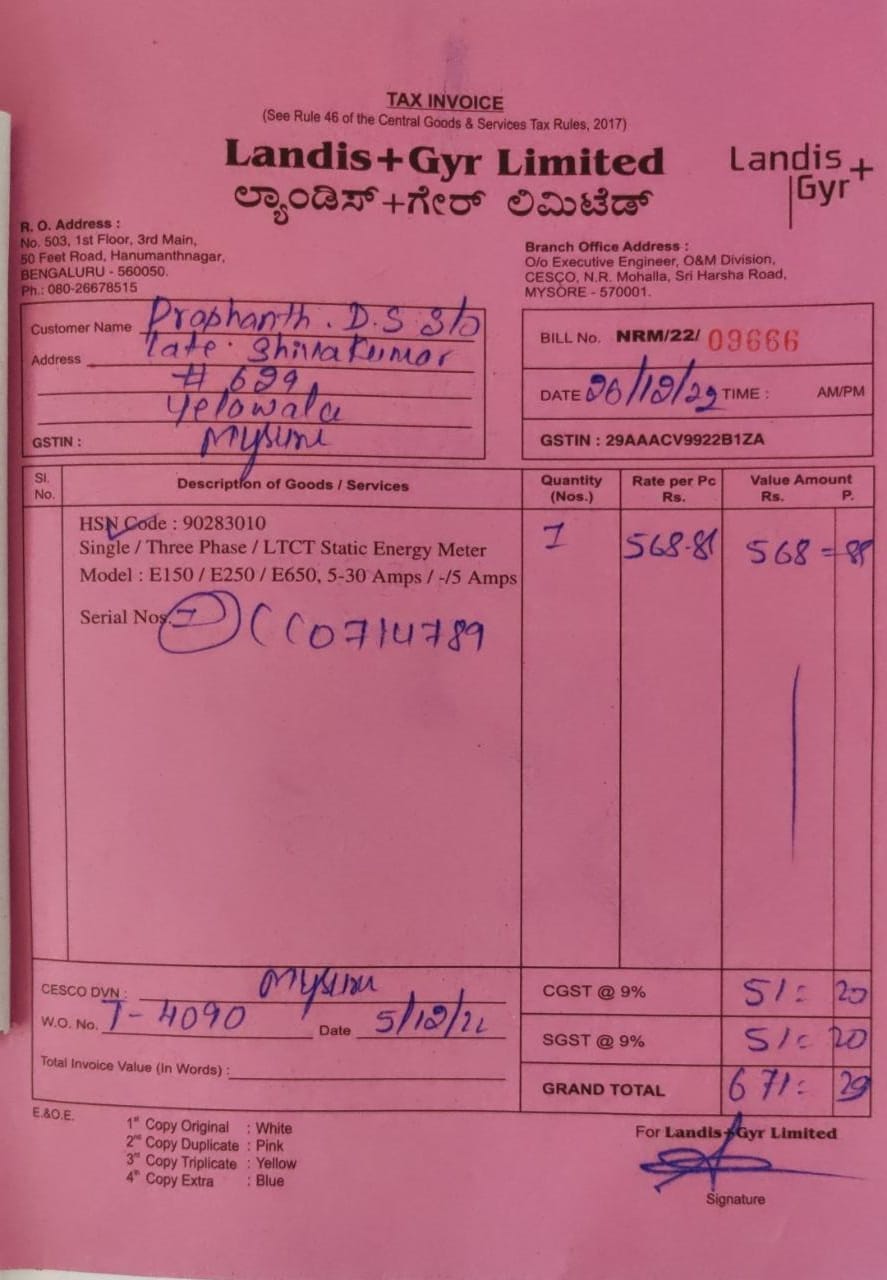 TAX INVOICE
(See Rule 46 of the Central Goods & Services Tax Rules, 2017)
Landis+Gyr Limited
ಲ್ಯಾಂಡಿಸ್+ಗೇರ್ ಲಿಮಿಟೆಡ್
Landis
Gyr+
R. O. Address :
No. 503, 1st Floor, 3rd Main,
50 Feet Road, Hanumanthnagar,
BENGALURU - 560050.
Ph.: 080-26678515
Branch Office Address :
O/o Executive Engineer, O&M Division,
CESCO, N.R. Mohalla, Sri Harsha Road,
MYSORE - 570001.
Customer Name Prashanth . D.S S/o
Address late . Shivakumar
# 699,
Yelowala
GSTIN : Mysuru
BILL No. NRM/22/ 09666
DATE 26/12/22 TIME : AM/PM
GSTIN : 29AAACV9922B1ZA
Sl. No. Description of Goods / Services Quantity (Nos.) Rate per Pc Rs. Value Amount Rs. P.
HSN Code : 90283010 1 568-81 568 =
Single / Three Phase / LTCT Static Energy Meter
Model : E150 / E250 / E650, 5-30 Amps / -/5 Amps
Serial Nos. CC0714789
CESCO DVN : Mysuru
W.O. No. T-4090 Date 5/12/22
Total Invoice Value (In Words) :
CGST @ 9% 51= 20
SGST @ 9% 51= 20
GRAND TOTAL 671=
E.&O.E.
1st Copy Original : White
2nd Copy Duplicate : Pink
3rd Copy Triplicate : Yellow
4th Copy Extra : Blue
For Landis+Gyr Limited
Signature